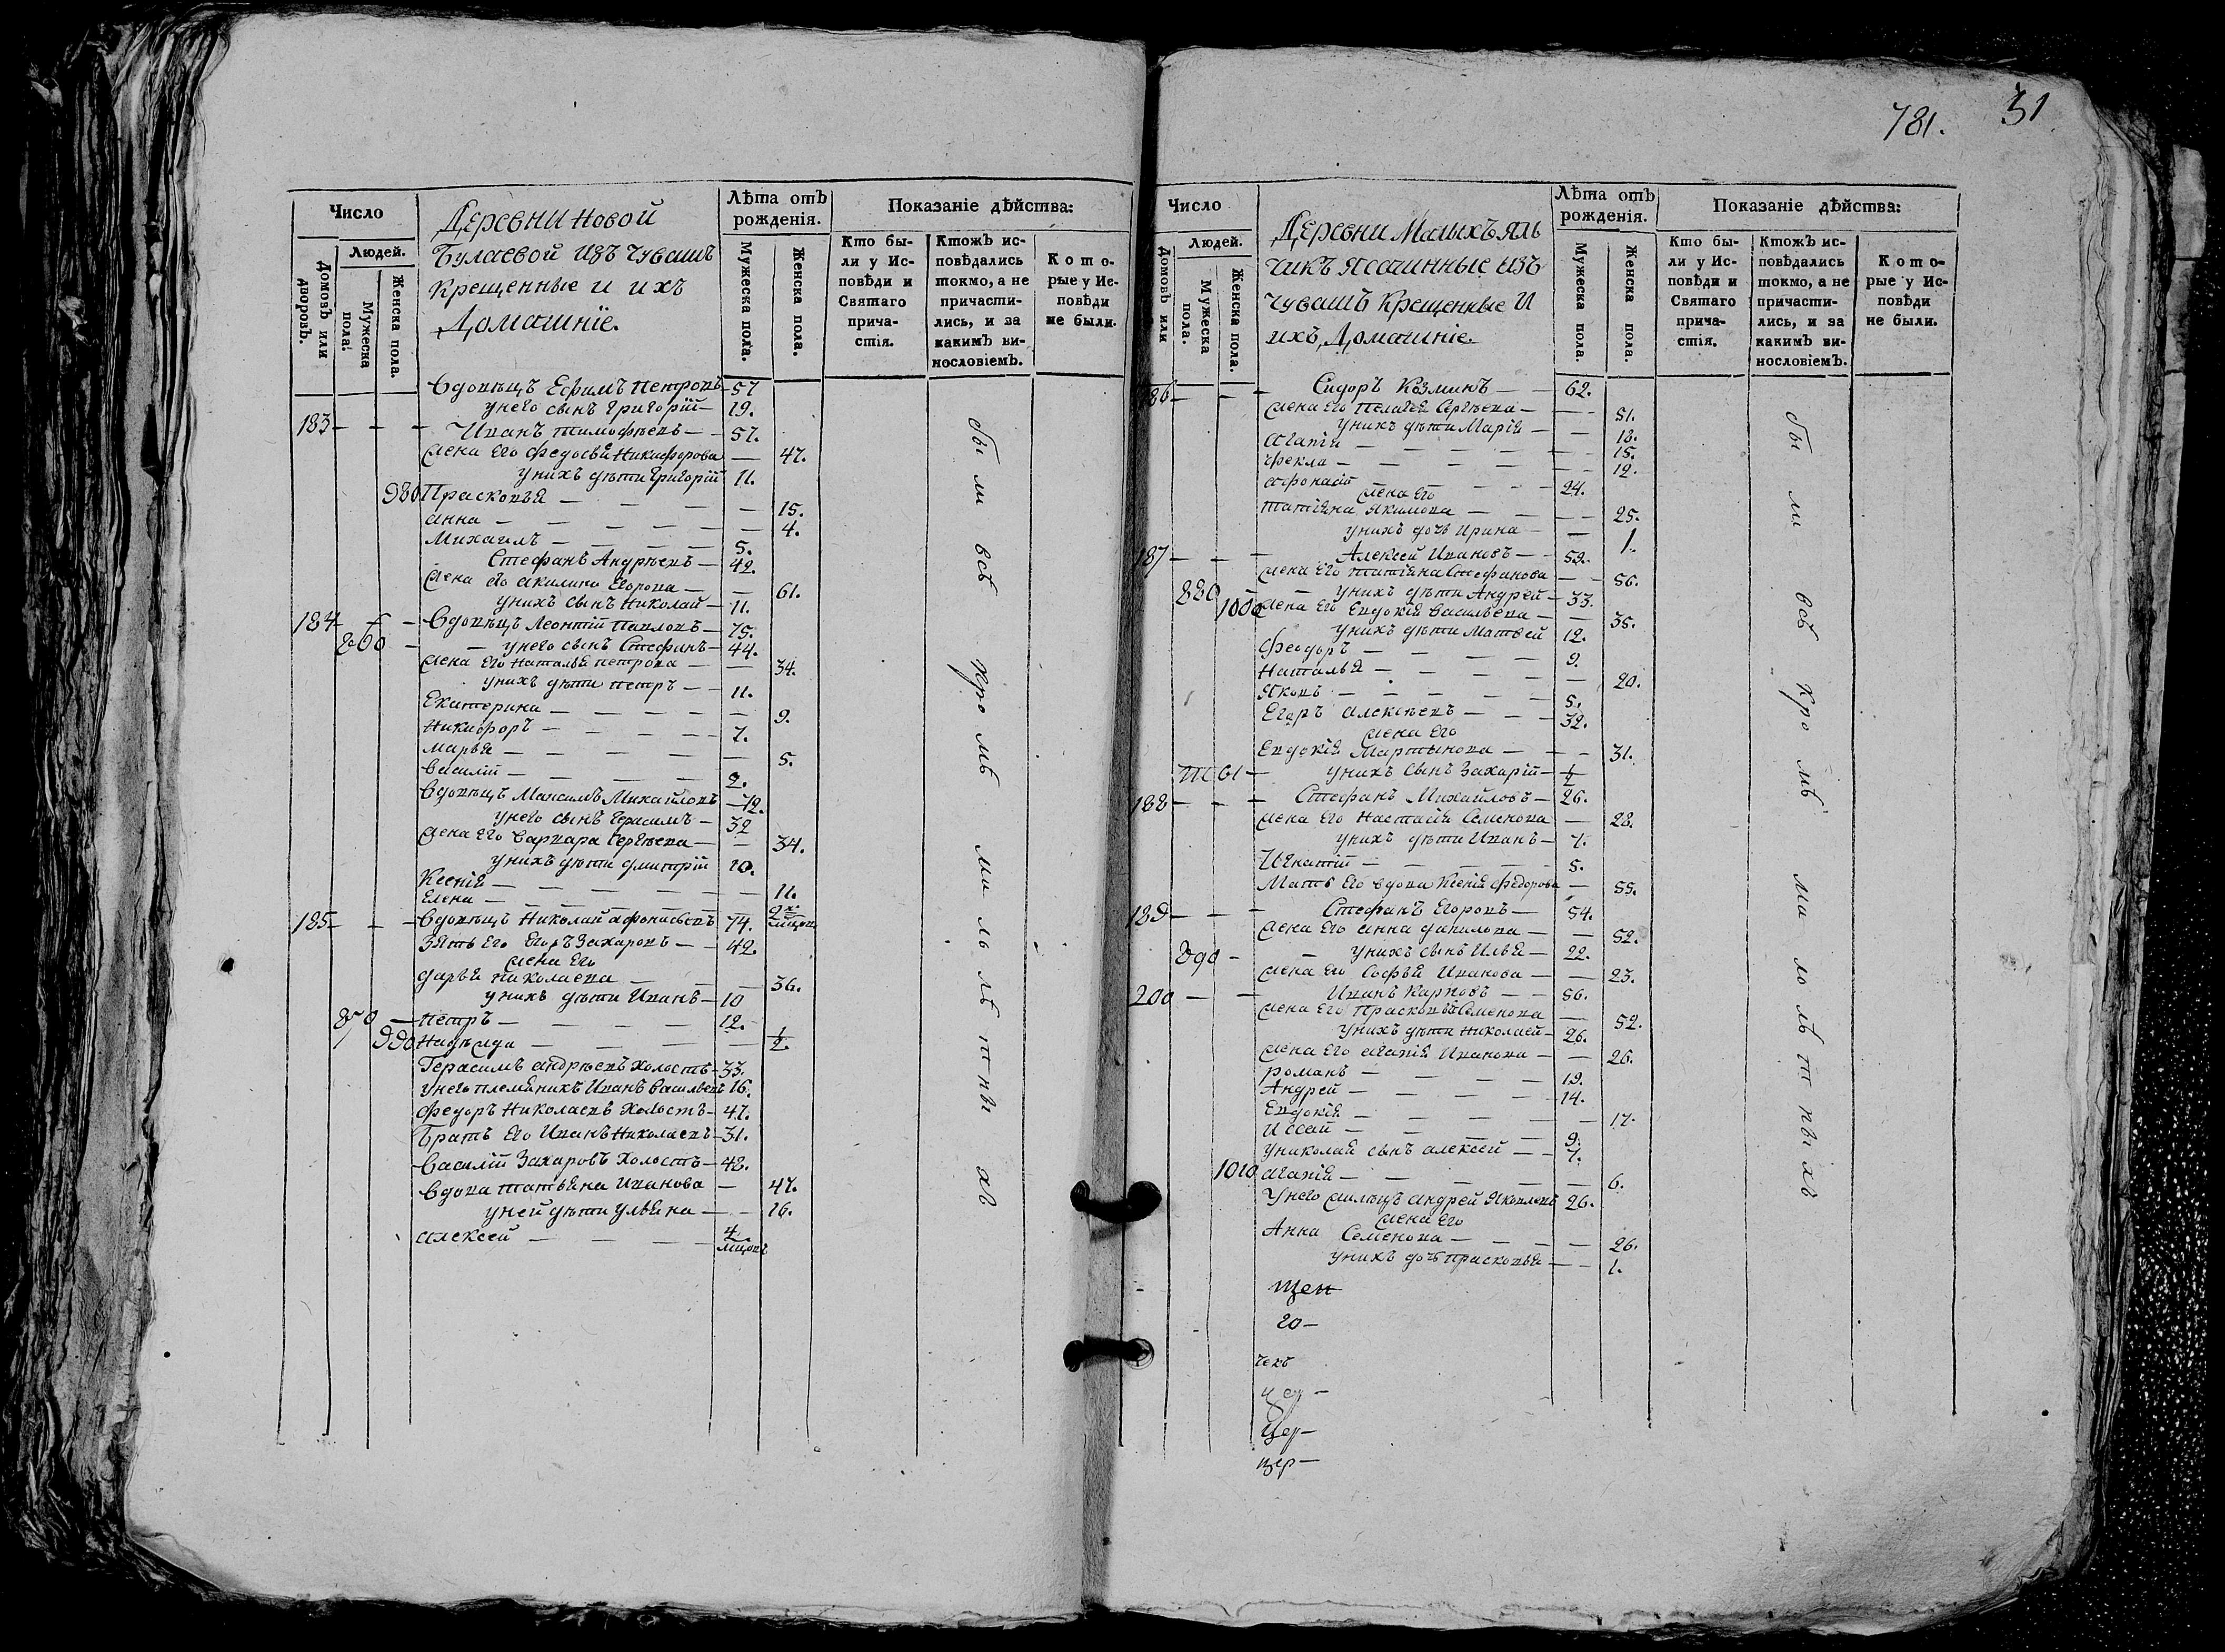 781. 31
Число
Людей.
Домовъ или дворовъ.
Мужеска пола.
Женска пола.
Деревни Новой
Булаевой изъ Чувашъ
Крещенные и ихъ
Домашніе.
Лѣта отъ рожденія.
Мужеска пола.
Женска пола.
Показаніе дѣйства:
Кто были у Исповѣди и Святаго причастія.
Ктожъ исповѣдались токмо, а не причастились, и за какимъ винословіемъ.
Которые у Исповѣди не были.
Вдовецъ Ефимъ Петровъ 57
у него сынъ Григорій 19.
183 Иванъ Тимофѣевъ 57.
жена его Федосья Никифорова 47.
у нихъ дѣти Григорій 11.
980 Прасковья 15.
Анна 4.
Михаилъ 5.
Стефанъ Андрѣевъ 42.
жена его Акилина Егорова 61.
у нихъ сынъ Николай 11.
184 Вдовецъ Леонтій Павловъ 75.
860 у него сынъ Стефанъ 44.
жена его Наталья Петрова 34.
у нихъ дѣти Петръ 11.
Екатерина 9.
Никифоръ 7.
Марья 5.
Василій 2.
Вдовецъ Максимъ Михайловъ 72.
у него сынъ Герасимъ 32
жена его Варвара Сергѣева 34.
у нихъ дѣти Дмитрій 10.
Ксенія 11.
Елена 2хъ мѣсяцовъ
185 Вдовецъ Николай Афонасьевъ 74.
Зять его Егоръ Захаровъ 42.
жена его
Дарья Николаева 36.
у нихъ дѣти Иванъ 10
870 Петръ 12.
990 Надежда 1/2.
Герасимъ Андрѣевъ холостъ 33.
у него племяникъ Иванъ Васильевъ 16.
Федоръ Николаевъ холостъ 47.
Братъ его Иванъ Николаевъ 31.
Василій Захаровъ холостъ 42.
Вдова Татьяна Иванова 47.
у ней дѣти Ульяна 16.
Алексей 4 мѣсяцовъ
были всѣ кромѣ малолѣтныхъ
Число
Людей.
Домовъ или
Мужеска пола.
Женска пола.
Деревни Малыхъ Яль
чикъ Ясашинные изъ
Чувашъ Крещенные и
ихъ Домашніе.
Лѣта отъ рожденія.
Мужеска пола.
Женска пола.
Показаніе дѣйства:
Кто были у Исповѣди и Святаго причастія.
Ктожъ исповѣдались токмо, а не причастились, и за какимъ винословіемъ.
Которые у Исповѣди не были.
186 Сидоръ Козминъ 62.
жена его Пелагея Сергѣева 51.
у нихъ дѣти Марія 18.
Агапія 15.
Фекла 12.
Афонасій 24.
жена его
Татіяна Якимова 25.
у нихъ дочь Ирина 1.
187 Алексей Ивановъ 52.
жена его Татіяна Стефанова 56.
880 у нихъ дѣти Андрей 33.
1000 жена его Евдокія Васильева 35.
у нихъ дѣти Матвей 12.
Феодоръ 9.
Наталья 20.
Яковъ 5.
Егоръ Алексѣевъ 32.
жена его
Евдокія Мартынова 31.
у нихъ сынъ Захарій 1/2
188 Стефанъ Михайловъ 26.
жена его Настасія Семенова 28.
у нихъ дѣти Иванъ 7.
Игнатій 5.
Мать его вдова Ксенія Федорова 55.
189 Стефанъ Егоровъ 54.
жена его Анна Данилова 52.
890 у нихъ сынъ Илья 22.
жена его Софья Иванова 23.
200 Иванъ Карповъ 56.
жена его Прасковья Семенова 52.
у нихъ дѣти Николай 26.
жена его Агапія Иванова 26.
Романъ 19.
Андрей 14.
Евдокія 17.
Иссай 9.
у Николая сынъ Алексей 7.
1010 Агапія 6.
у него жилецъ Андрей Яковлевъ 26.
жена его
Анна Семенова 26.
у нихъ дочь Прасковья 1.
были всѣ кромѣ малолѣтныхъ
20